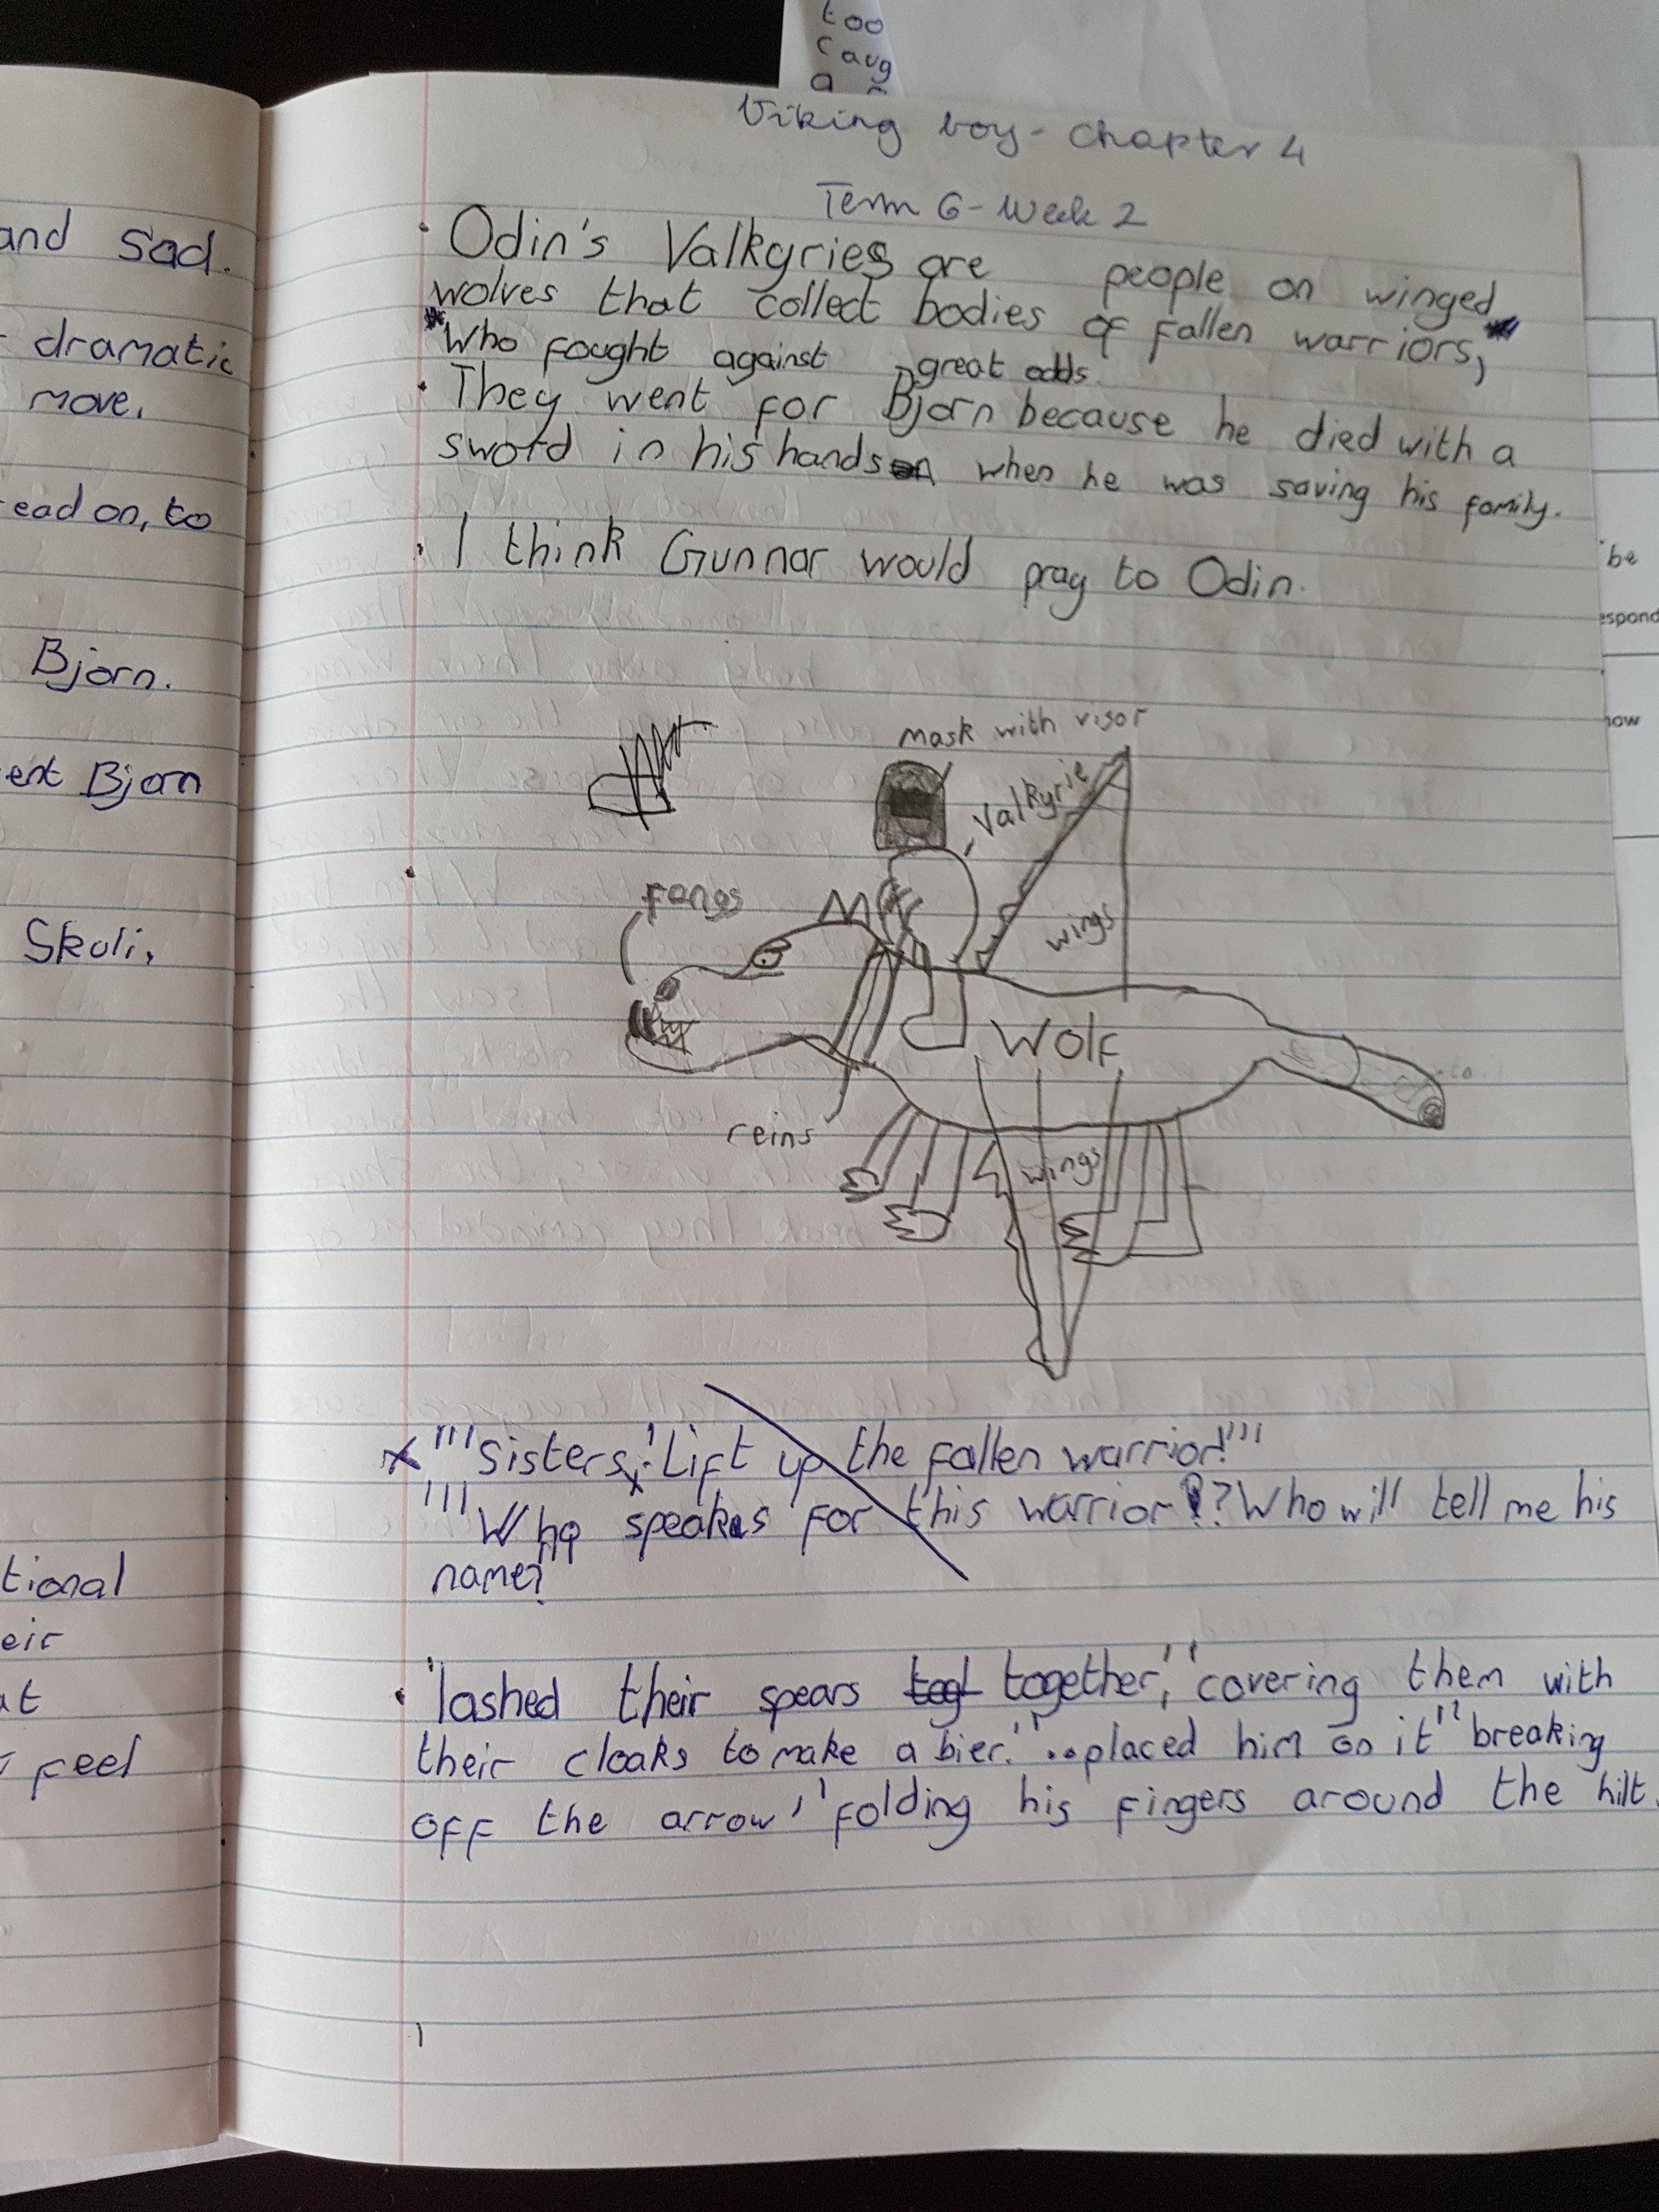 too
caug
a
Viking boy - Chapter 4
Term 6 - Week 2
and sad.
dramatic
move.
ead on, to
Bjorn.
ent Bjorn
Skuli,
tional
eir
at
feel
• Odin's Valkyries are people on winged
wolves that collect bodies of fallen warriors,
Who fought against great odds.
• They went for Bjorn because he died with a
sword in his hands when he was saving his family.
• I think Gunnar would pray to Odin.
mask with visor
Valkyrie
fangs
wings
Wolf
tail
reins
wings
x "'Sisters! Lift up the fallen warrior!'"
"'Who speaks for this warrior? Who will tell me his
name?"
• 'lashed their spears togt together,' 'covering them with
their cloaks to make a bier.' '..placed him on it' 'breaking
off the arrow,' 'folding his fingers around the hilt.
be
espond
now